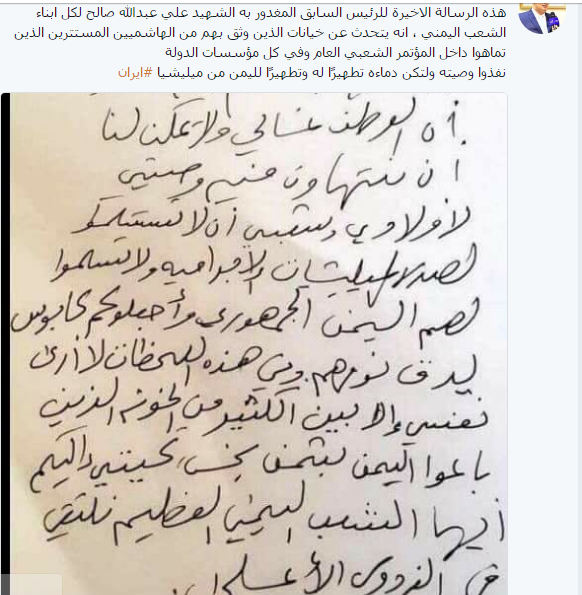 هذه الرسالة الاخيرة للرئيس السابق المغدور به الشهيد علي عبدالله صالح لكل ابناء
الشعب اليمني ، انه يتحدث عن خيانات الذين وثق بهم من الهاشميين المستترين الذين
تماهوا داخل المؤتمر الشعبي العام وفي كل مؤسسات الدولة
نفذوا وصيته ولتكن دماءه تطهيرًا له وتطهيرًا لليمن من ميليشيا #ايران
أن الوطن غالي ولا يمكن لنا
ان نتهاون فيه وصيتي
لاولادي وشعبي أن لا تستسلمو
لهذه الميليشيات الإجراميه ولا تسلموا
لهم اليمن الجمهوري وأجعلوكم كابوس
يدق نومهم وفي هذه اللحظات لا أرى
نفسي إلا بين الكثير من الخونه الذين
باعوا اليمن بثمن بخس تحيتي إليكم
أيها الشعب اليمني العظيم نلتقي
في الفردوس الأعلى